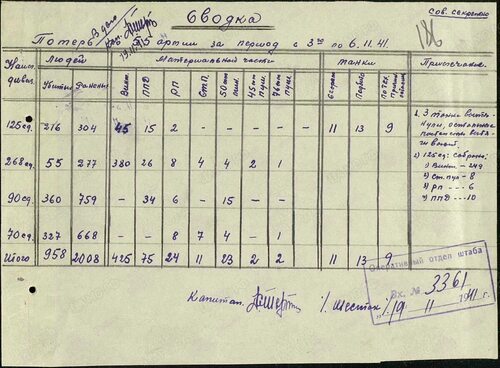 Сов. секретно
Сводка
В дело
Кап.
19.11.41
186
Потерь по армии за период с 3го по 6.11.41.
Наим. дивиз. Людей Материальной части Танки Примечание.
Убиты Ранены Винт. ППД РП Ст.П. 50 мм мин. 45 мм пуш. 76 мм пуш. Сгорели Подбито
125 сд. 216 304 45 15 2 - - - - 11 13 9
268 сд. 55 277 380 26 8 4 4 2 1 - - -
90 сд. 360 759 - 34 6 - 15 - - - - -
70 сд. 327 668 - - 8 7 4 - 1 - - -
Итого 958 2008 425 75 24 11 23 2 2 11 13 9
1. 3 танка
2) 125 сд: собрано:
а) Винт - 249
б) Ст. пул - 8
в) РП - - - 6
г) ППД - - 10
Капитан /Шестак/
Оперативный отдел штаба
Вх. № 3361
"19" 11 1941 г.